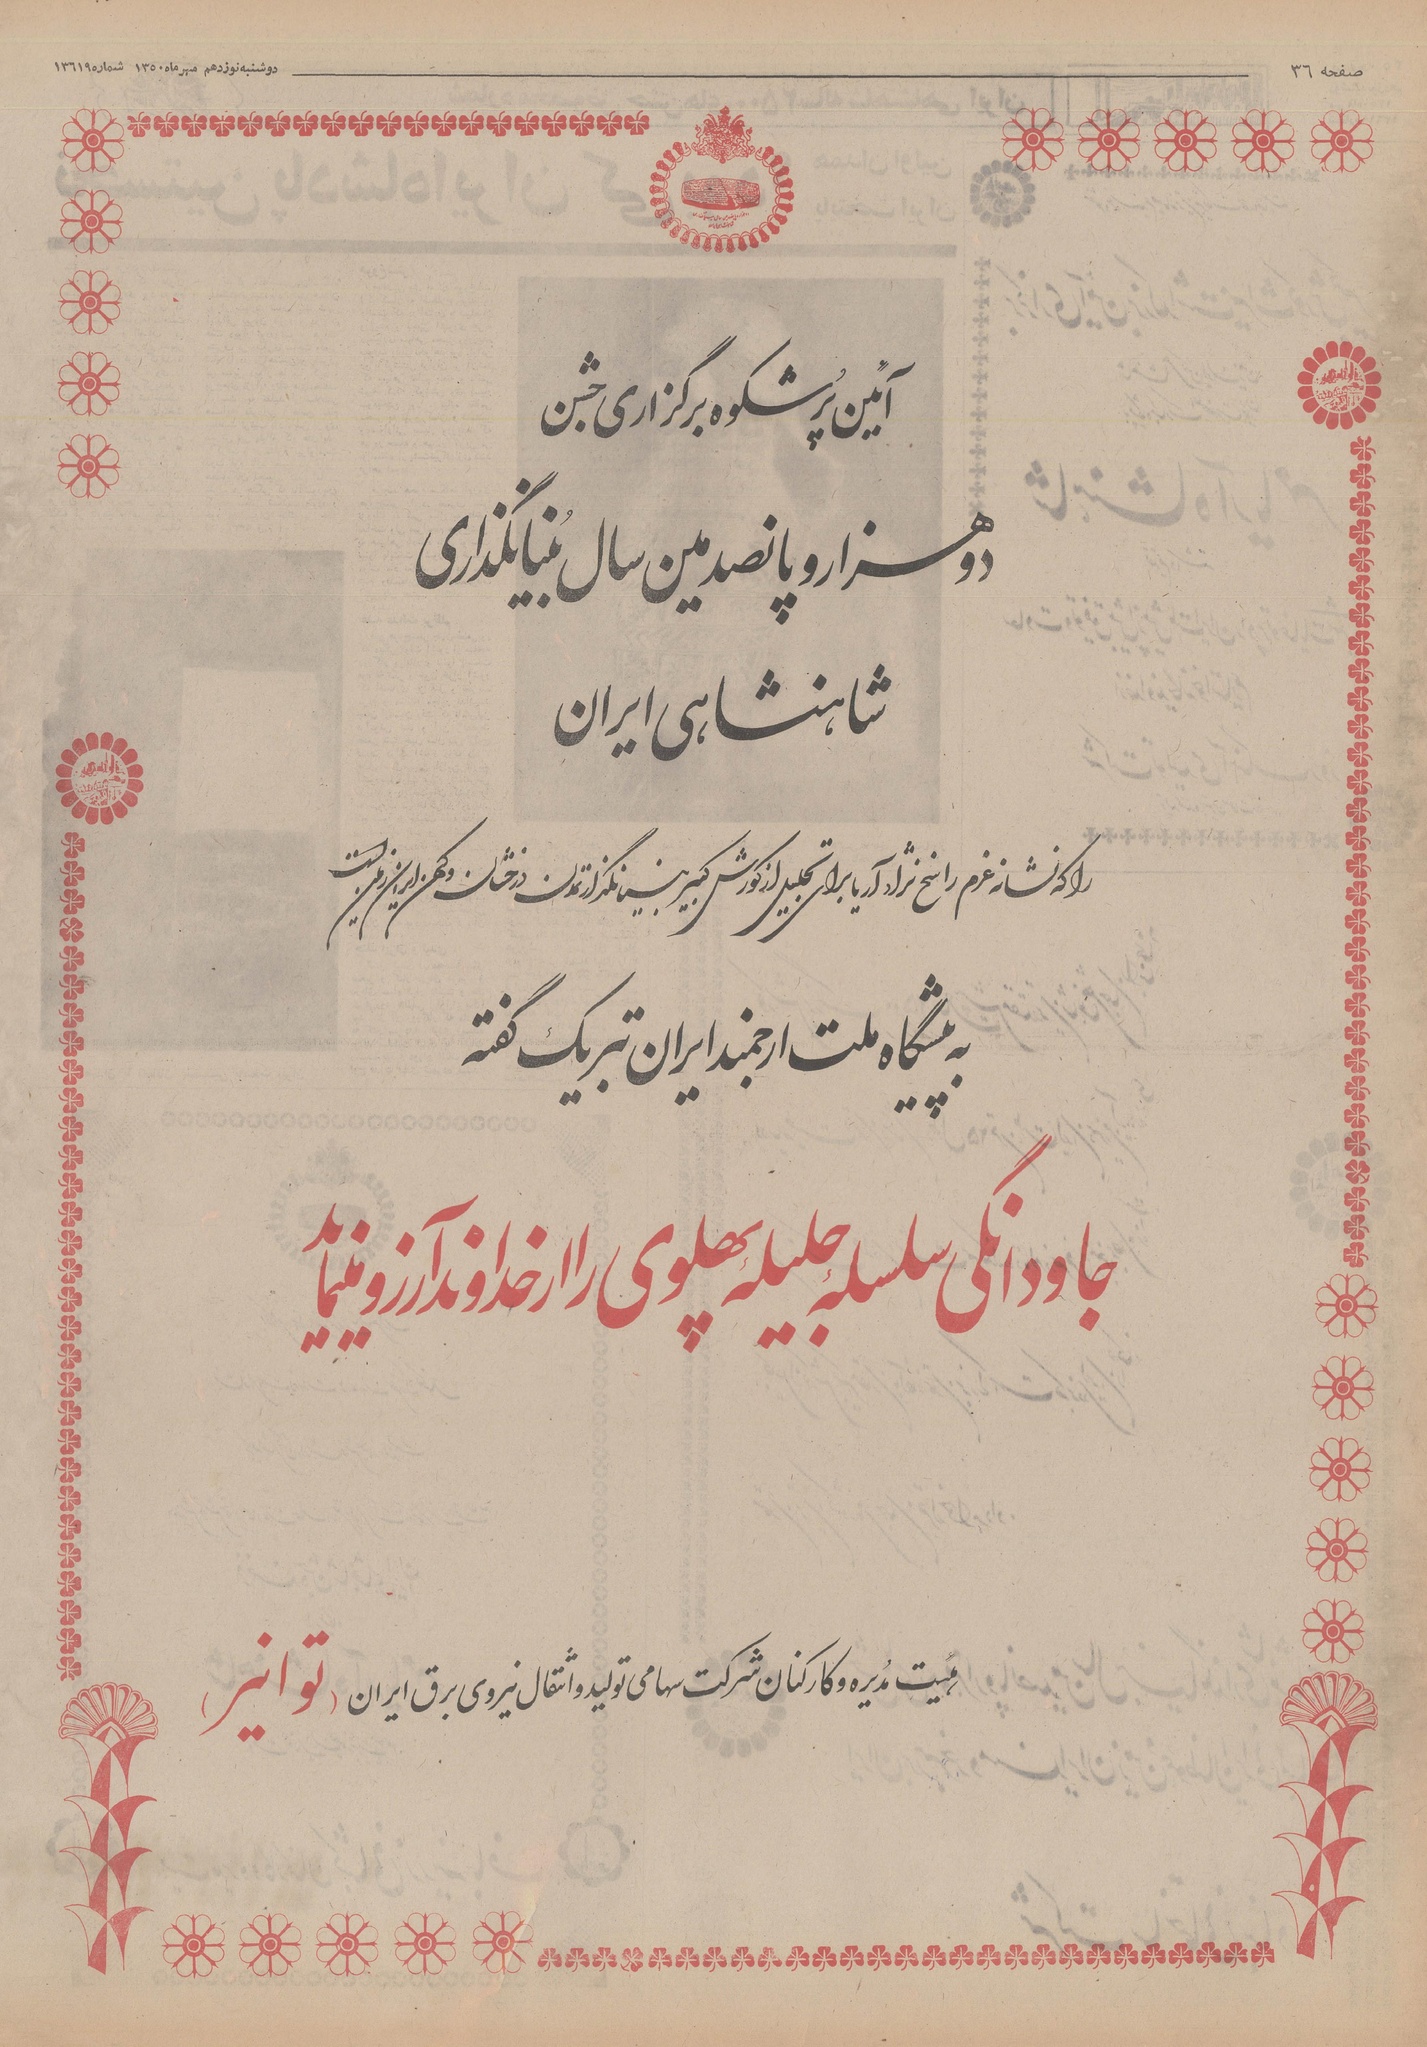 صفحه ۳۶
دوشنبه نوزدهم مهرماه ۱۳۵۰ شماره ۱۳۶۱۹
آئین پُرشکوه برگزاری جشن
دوهزار و پانصدمین سال بُنیانگذاری
شاهنشاهی ایران
را که نشانه عزم راسخ نژاد آریا برای تجلیل از کورش کبیر بنیانگذار تمدن درخشان و کهن ایران زمین است
به پیشگاه ملت ارجمند ایران تبریک گفته
جاودانگی سلسلهٔ جلیلهٔ پهلوی را از خداوند آرزو مینماید
هیئت مُدیره و کارکنان شرکت سهامی تولید و انتقال نیروی برق ایران (توانیر)